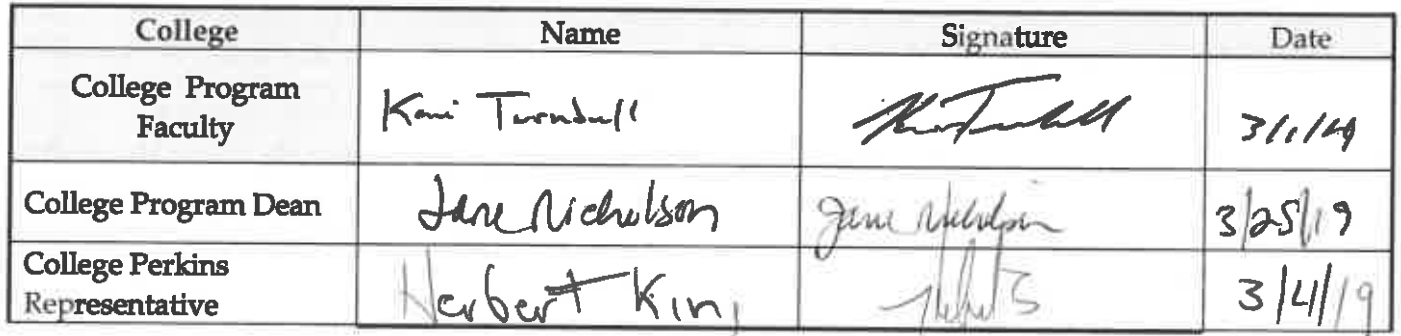 College Name Signature Date
College Program
Faculty
Kami Turndull 3/1/19
College Program Dean Jane Nicholson Jane Nicholson 3/25/19
College Perkins
Representative
Herbert King 3/4/19